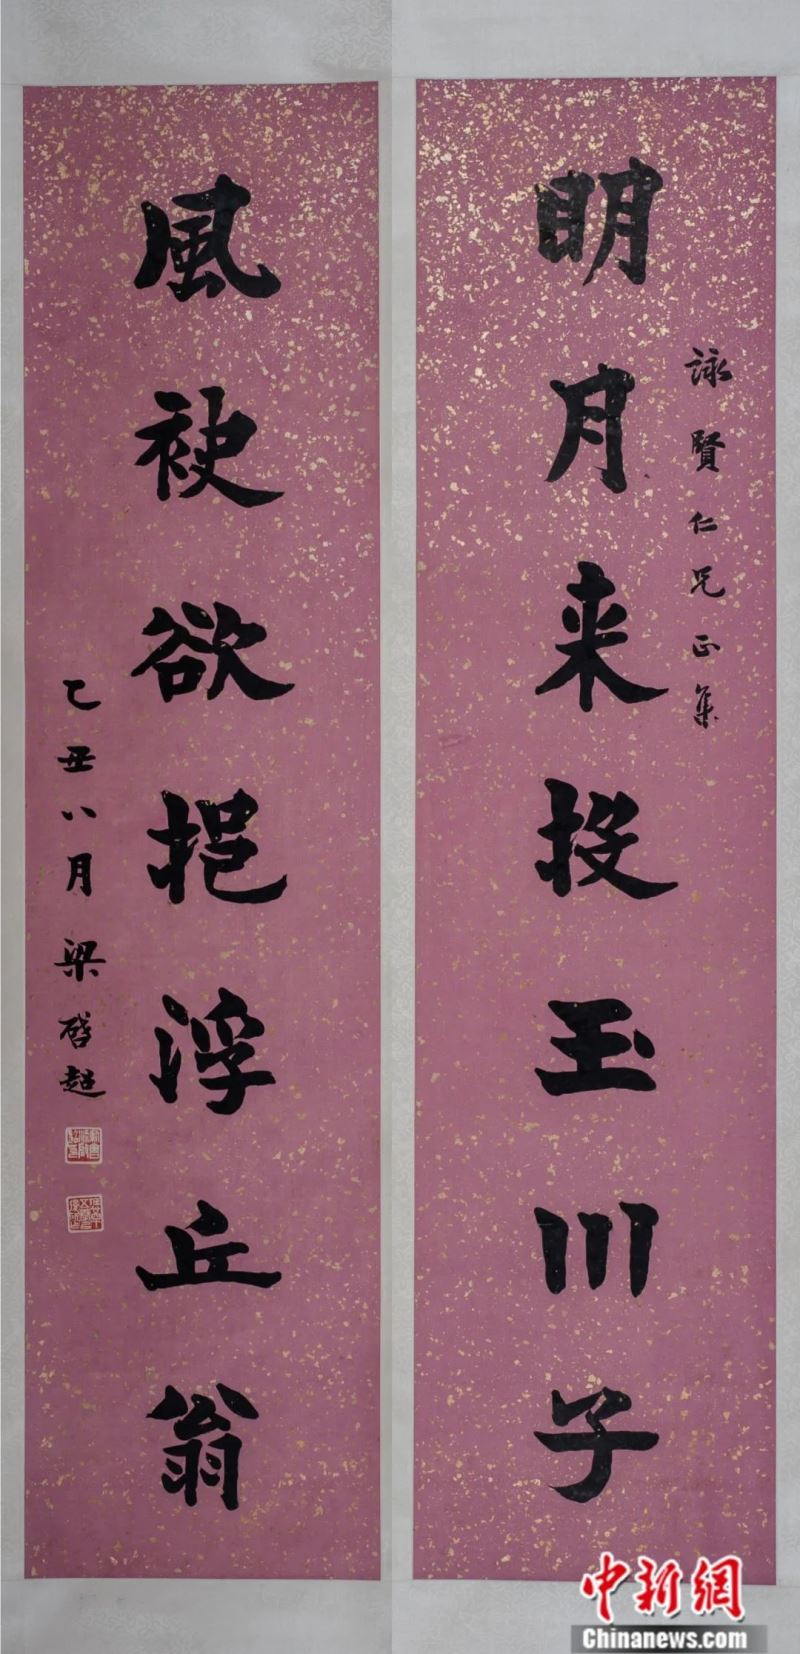 詠賢仁兄正集
明月来投玉川子
風袂欲挹浮丘翁
乙丑八月梁啓超
中新網
Chinanews.com